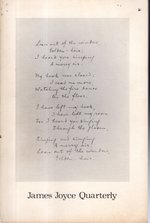 Lean out of the window,
Golden-hair,
I heard you singing
A merry air.
My book was closed;
I read no more,
Watching the fire dance
On the floor.
I have left my book,
I have left my room,
For I heard you singing
Through the gloom.
Singing and singing
A merry air,
Lean out of the window,
Golden-hair.
James Joyce Quarterly